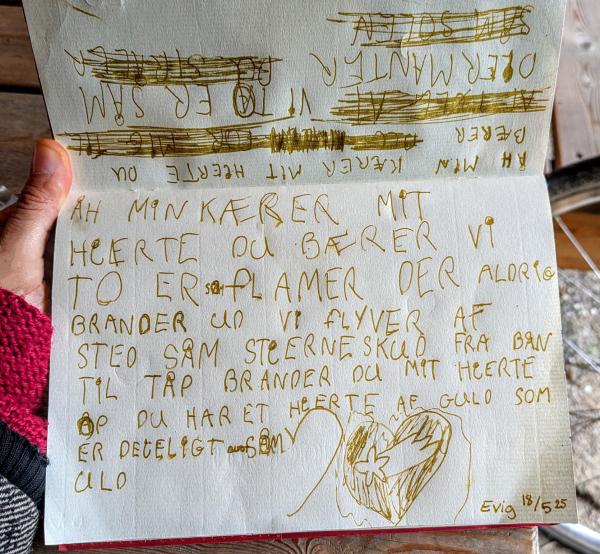 ÅH MIN KÆRER MIT HLERTE DU
BÆRER
VI TO ER SÅM
DIERMANTER
ÅH MIN KÆRER MIT
HLERTE DU BÆRER VI
TO ER SÅM FLAMER DER ALDRIG
BRANDER UD VI FLYVER AF
STED SÅM STLERNESKUD FRA BÅN
TIL TÅP BRANDER DU MIT HLERTE
ÅP DU HAR ET HLERTE AF GULD SOM
ER DEJELIGT SÅM
GULD
Evig 18/5 25